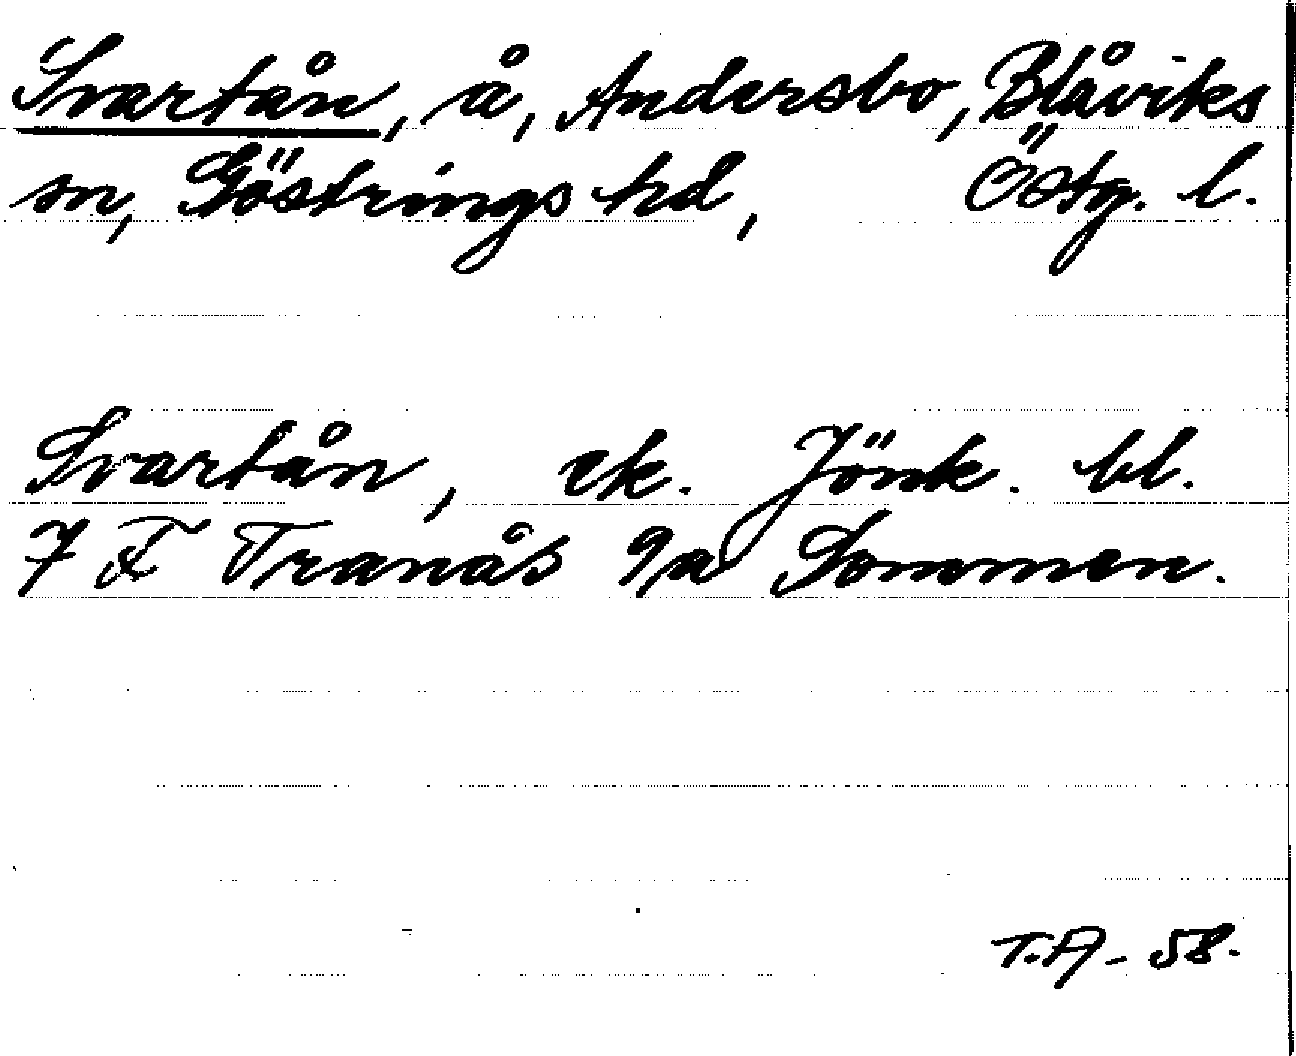 Svartån, å, Andersbo, Blåviks
sn, Göstrings hd, Östg. l.
Svartån, ek. Jönk. bl.
7 F Tranås 9a Sommen.
T.A - 58.